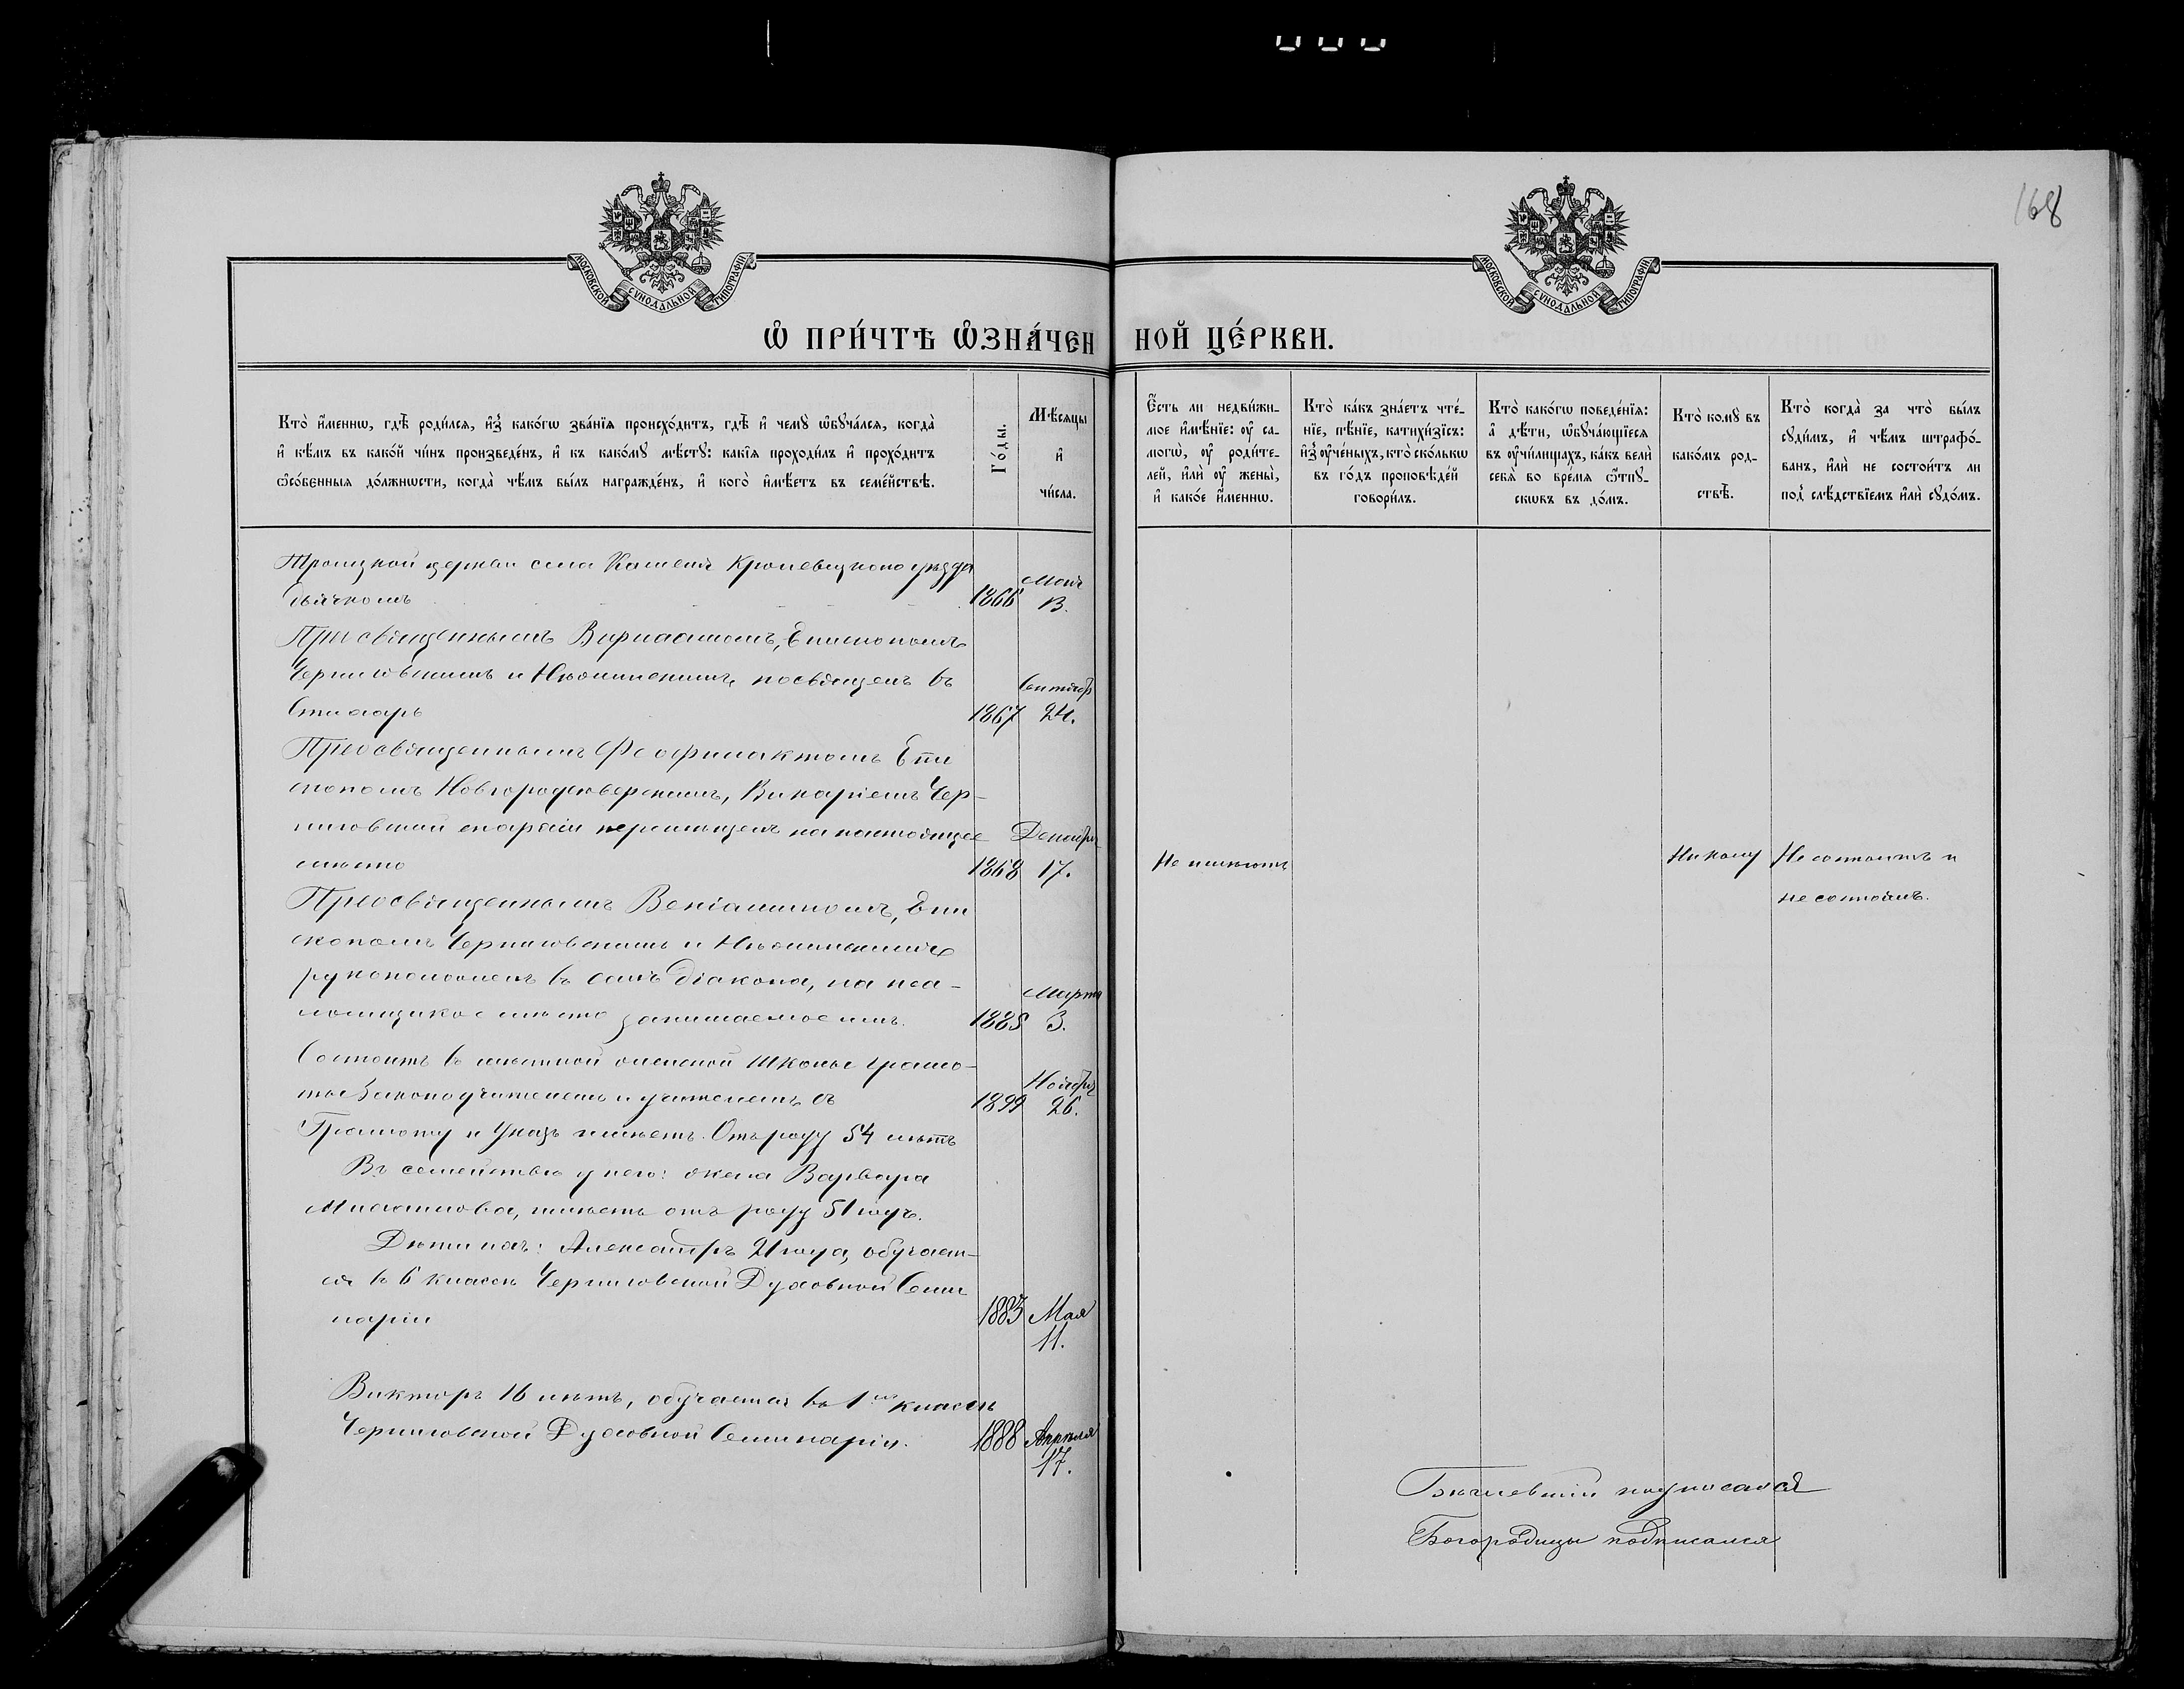 168
МОСКОВСКОЙ СѴНОДАЛЬНОЙ ТИПОГРАФІИ
МОСКОВСКОЙ СѴНОДАЛЬНОЙ ТИПОГРАФІИ
Ѡ҆ ПРИ́ЧТѢ Ѡ҆ЗНА́ЧЕННОЙ ЦЕ́РКВИ.
Кто̀ и҆́меннѡ, гдѣ̀ роди́лсѧ, и҆з̾ како́гѡ зва́нїѧ происхо́дитъ, гдѣ̀ и҆ чемꙋ̀ ѡ҆бꙋча́лсѧ, когда̀
и҆ кѣ́мъ въ како́й чи́нъ произведе́нъ, и҆ къ како́мꙋ мѣ́стꙋ: какі̑ѧ проходи́лъ и҆ прохо́дитъ
ѡ҆со́бенныѧ до́лжнѡсти, когда̀ чѣ́мъ бы́лъ награжде́нъ, и҆ кого̀ и҆мѣ́етъ въ семе́йствѣ.
Го́ды.
Мѣ́сѧцы
и҆
чи́сла.
Є҆́сть ли недви́жи-
мое и҆мѣ́нїе: ᲂу҆ са-
могѡ̀, ᲂу҆ роди́те-
лей, и҆лѝ ᲂу҆ жены̀,
и҆ како́е и҆́меннѡ.
Кто̀ ка́къ зна́етъ чте́-
нїе, пѣ́нїе, катихи́зїсъ:
и҆з̾ ᲂу҆че́ныхъ, кто̀ ско́лькѡ
въ го́дъ проповѣ́дей
говори́лъ.
Кто̀ како́гѡ поведе́нїѧ:
а҆ дѣ́ти, ѡ҆бꙋча́ющїесѧ
въ ᲂу҆чи́лищахъ, ка́къ велѝ
себѧ̀ во вре́мѧ ѿпꙋ-
скѡвъ въ до́мъ.
Кто̀ комꙋ̀ въ
како́мъ род-
ствѣ̀.
Кто̀ когда̀ за что̀ бы́лъ
сꙋди́мъ, и҆ чѣ́мъ штрафо́-
ванъ, и҆лѝ не состои́тъ ли
под̾ слѣ́дствїемъ и҆лѝ сꙋдо́мъ.
Троицкой церкви села Кролевецкого уѣзда
дьячкомъ 1866
Преосвященнымъ Варлаамомъ, Епископомъ
Черниговскимъ и Нѣжинскимъ посвященъ въ
Стихарь 1867 Сентября 24.
Преосвященнымъ Феофилактомъ Епи
скопомъ Новгородсѣверскимъ, Викаріемъ Чер-
ниговской епархіи перемѣщенъ на настоящее
мѣсто 1868 Декабря 17.
Не имѣютъ
Никому
Не состоитъ и
не состоялъ.
Преосвященнымъ Веніаминомъ, Епи
скопомъ Черниговскимъ и Нѣжинскимъ
рукоположенъ въ санъ діакона, на пса-
ломщикое мѣсто занимаемое имъ. 1885 Марта 3.
Состоитъ въ мѣстной школѣ грамо-
ты Законоучителемъ и учителемъ съ 1899 Ноября 26.
Грамоту и Указъ имѣетъ. Отъ роду 54 лѣтъ
Въ семействѣ у него: жена Варвара
имѣетъ отъ роду 51 годъ.
Дѣти ихъ: Александръ 21 года, обучает-
ся въ 6 классѣ Черниговской Духовной Семи
наріи 1883 Мая 11.
Викторъ 16 лѣтъ, обучается въ 1мъ классѣ
Черниговской Духовной Семинаріи. 1888 Апрѣля 17.
подписался
Богородицы подписался